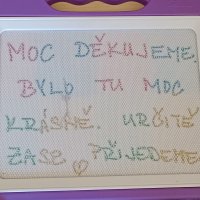 MOC DĚKUJEME
BYLO TU MOC
KRÁSNĚ. URČITĚ
ZASE PŘIJEDEME